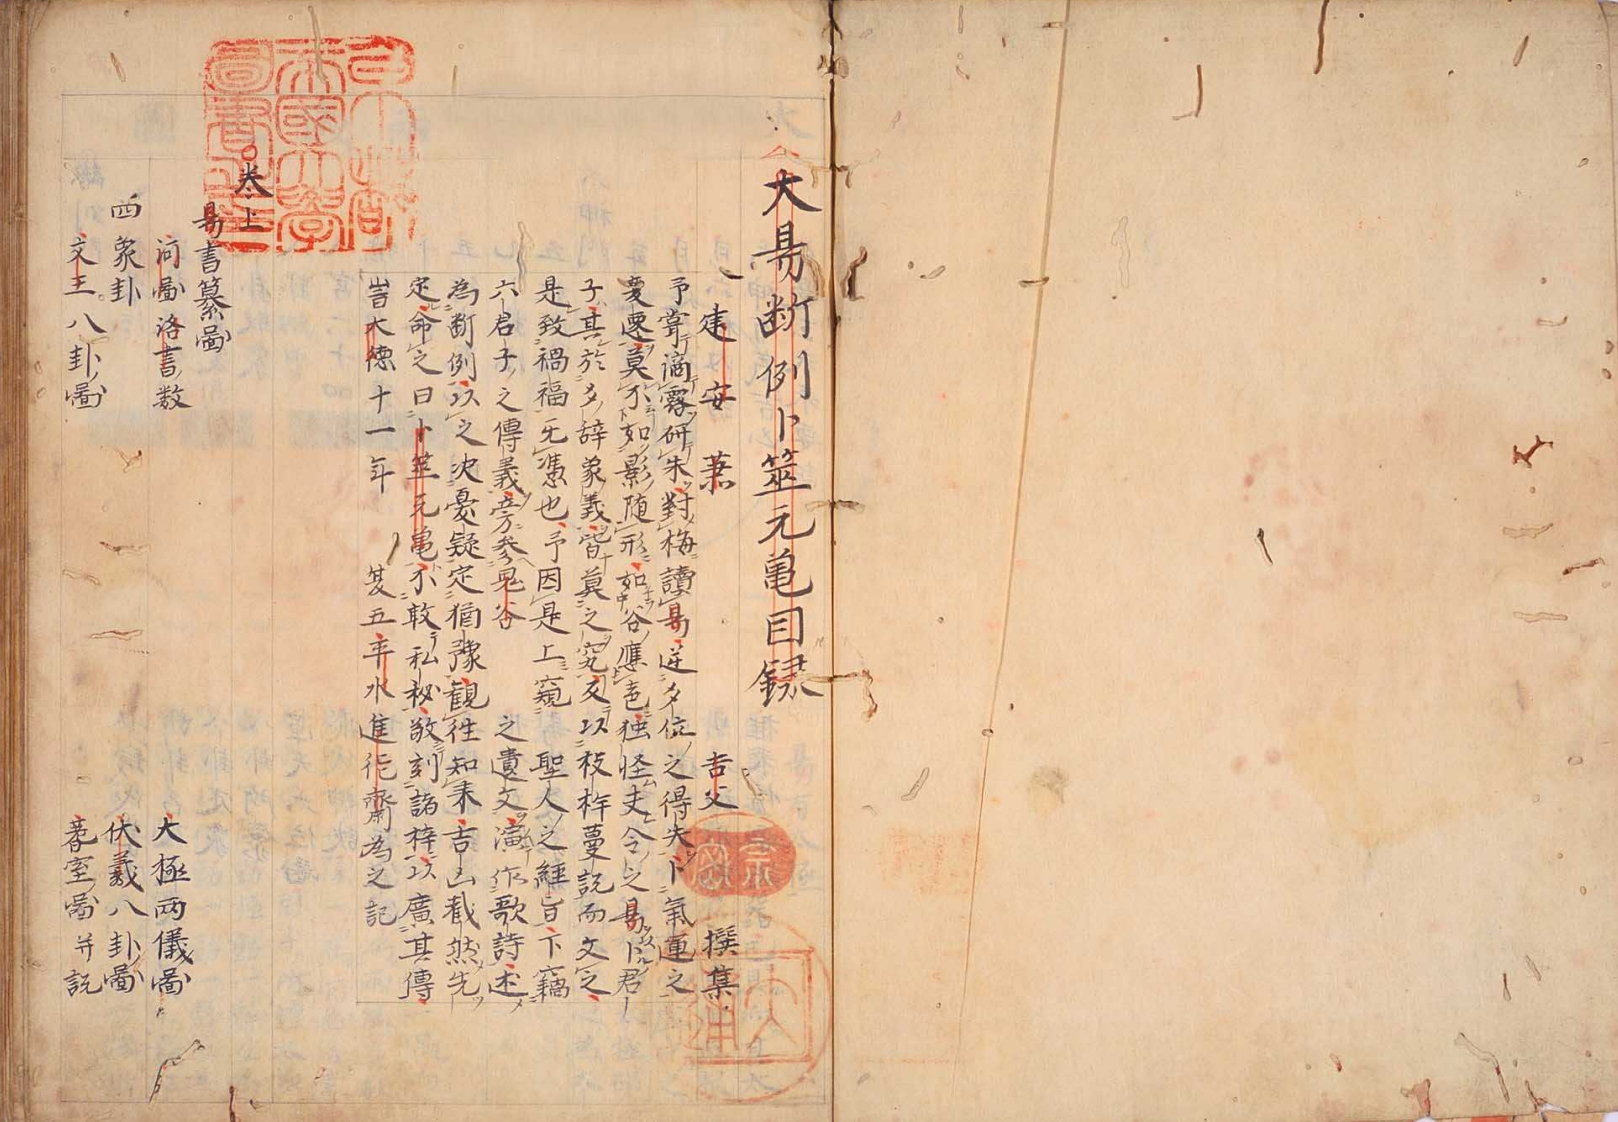 大易断例卜筮元亀目録
建安 萧 吉父 撰集
予嘗滴露研朱對梅讀易逆夕位之得失卜氣運之
憂遷莫不如影随形如谷應声独怪夫今之易卜君
子其於夕辞象義皆莫之究反以枝梓蔓説而文之
是致禍福无憑也予因是上窺 聖人之經旨下竊
六君子之傳義旁参鬼谷 之遺文演作歌詩述
為断例以之决憂疑定猶豫観往知来吉凶截然先
定命之曰卜筮元亀不敢私秘敬刻諸梓以廣其傳
旹大徳十一年 五年水進 齋為之記
巻上
易書纂圖
河圖洛書数 大極两儀圖
四象卦 伏羲八卦圖
文王八卦圖 蓍室圖并説
京都帝國大學圖書之印